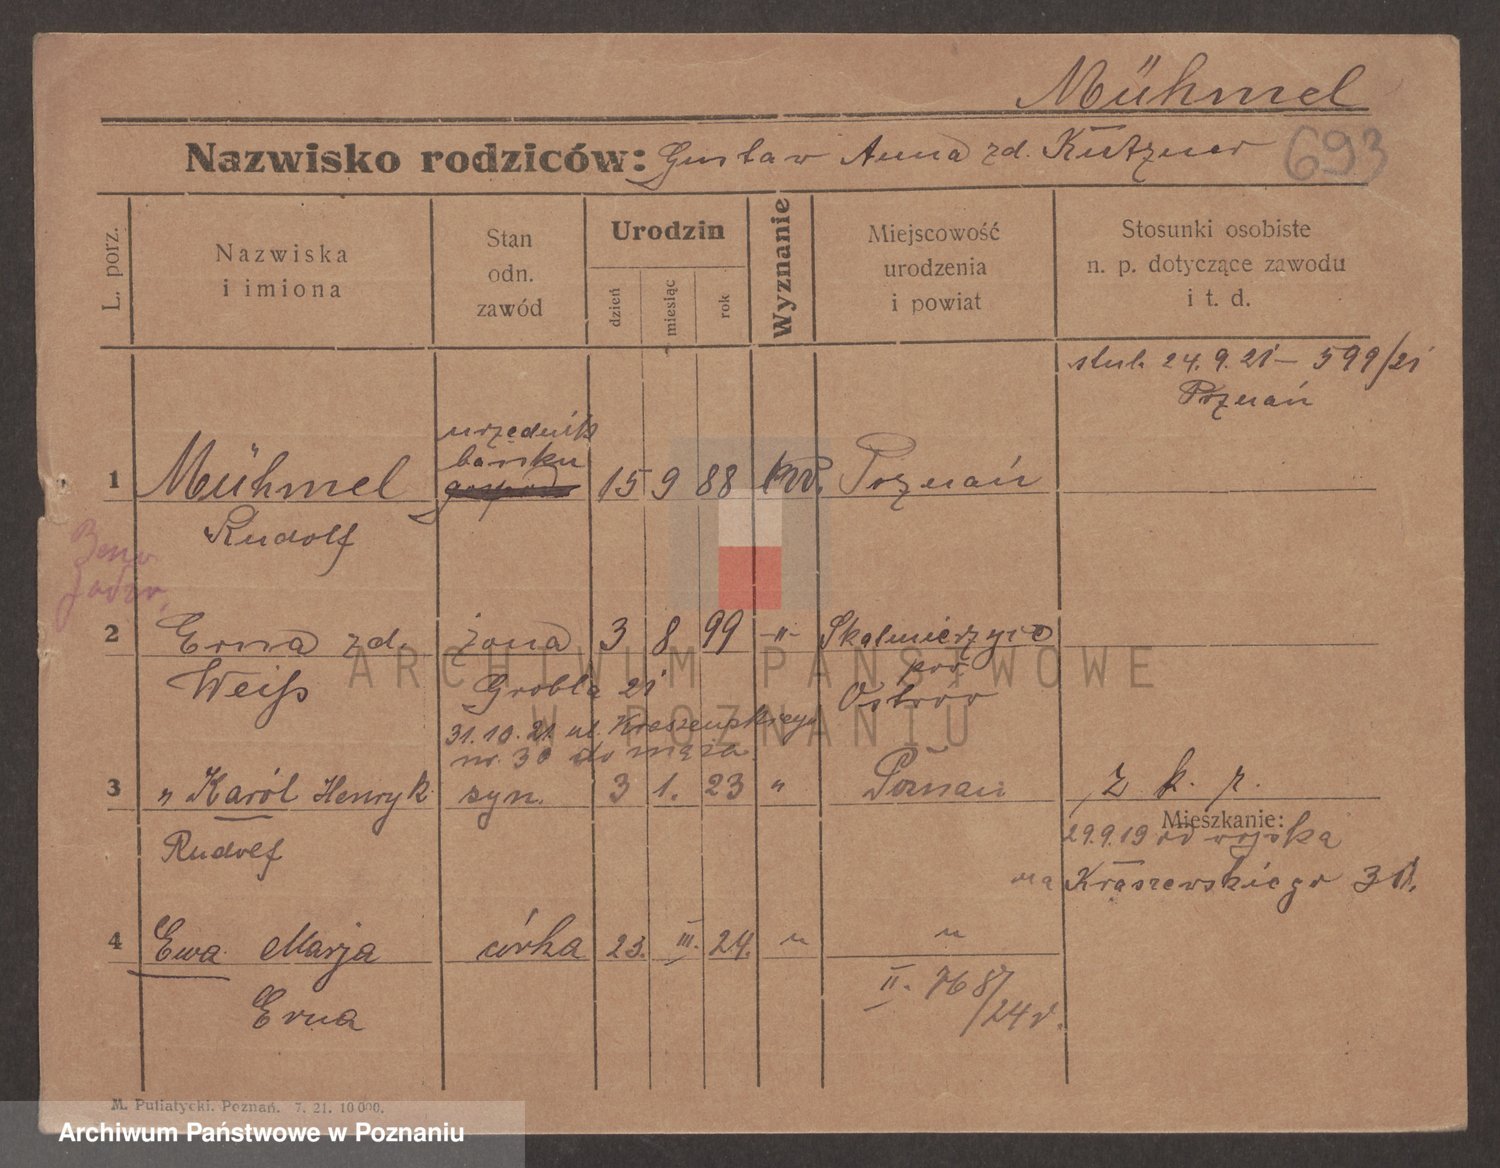 Mühmel
Nazwisko rodziców: Gustaw Anna zd. Kutzner 693
L. porz.
Nazwiska
i imiona
Stan
odn.
zawód
Urodzin
dzień
miesiąc
rok
Wyznanie
Miejscowość
urodzenia
i powiat
Stosunki osobiste
n. p. dotyczące zawodu
i t. d.
ślub. 24.9.21 – 599/21
Poznań
urzędnik
banku
1 Mühmel 15 9 88 Poznań
Rudolf
2 Erna zd. żona 3 8 99 -"- Skalmierzyce
pow.
Weiß Grobla 21 Ostrów
31.10.21. ul. Kraszewskiego
nr. 30 do męża
3 " Karól Henryk syn. 3 1. 23 " Poznań z k. r.
Rudolf
Mieszkanie:
29.9.19 od wojska
na Kraszewskiego 30.
4 Ewa Marja córka 23. III. 24. " "
Erna
II. 768/24 r.
M. Putiatycki. Poznań. 7. 21. 10000.
ARCHIWUM PAŃSTWOWE
W POZNANIU
Archiwum Państwowe w Poznaniu